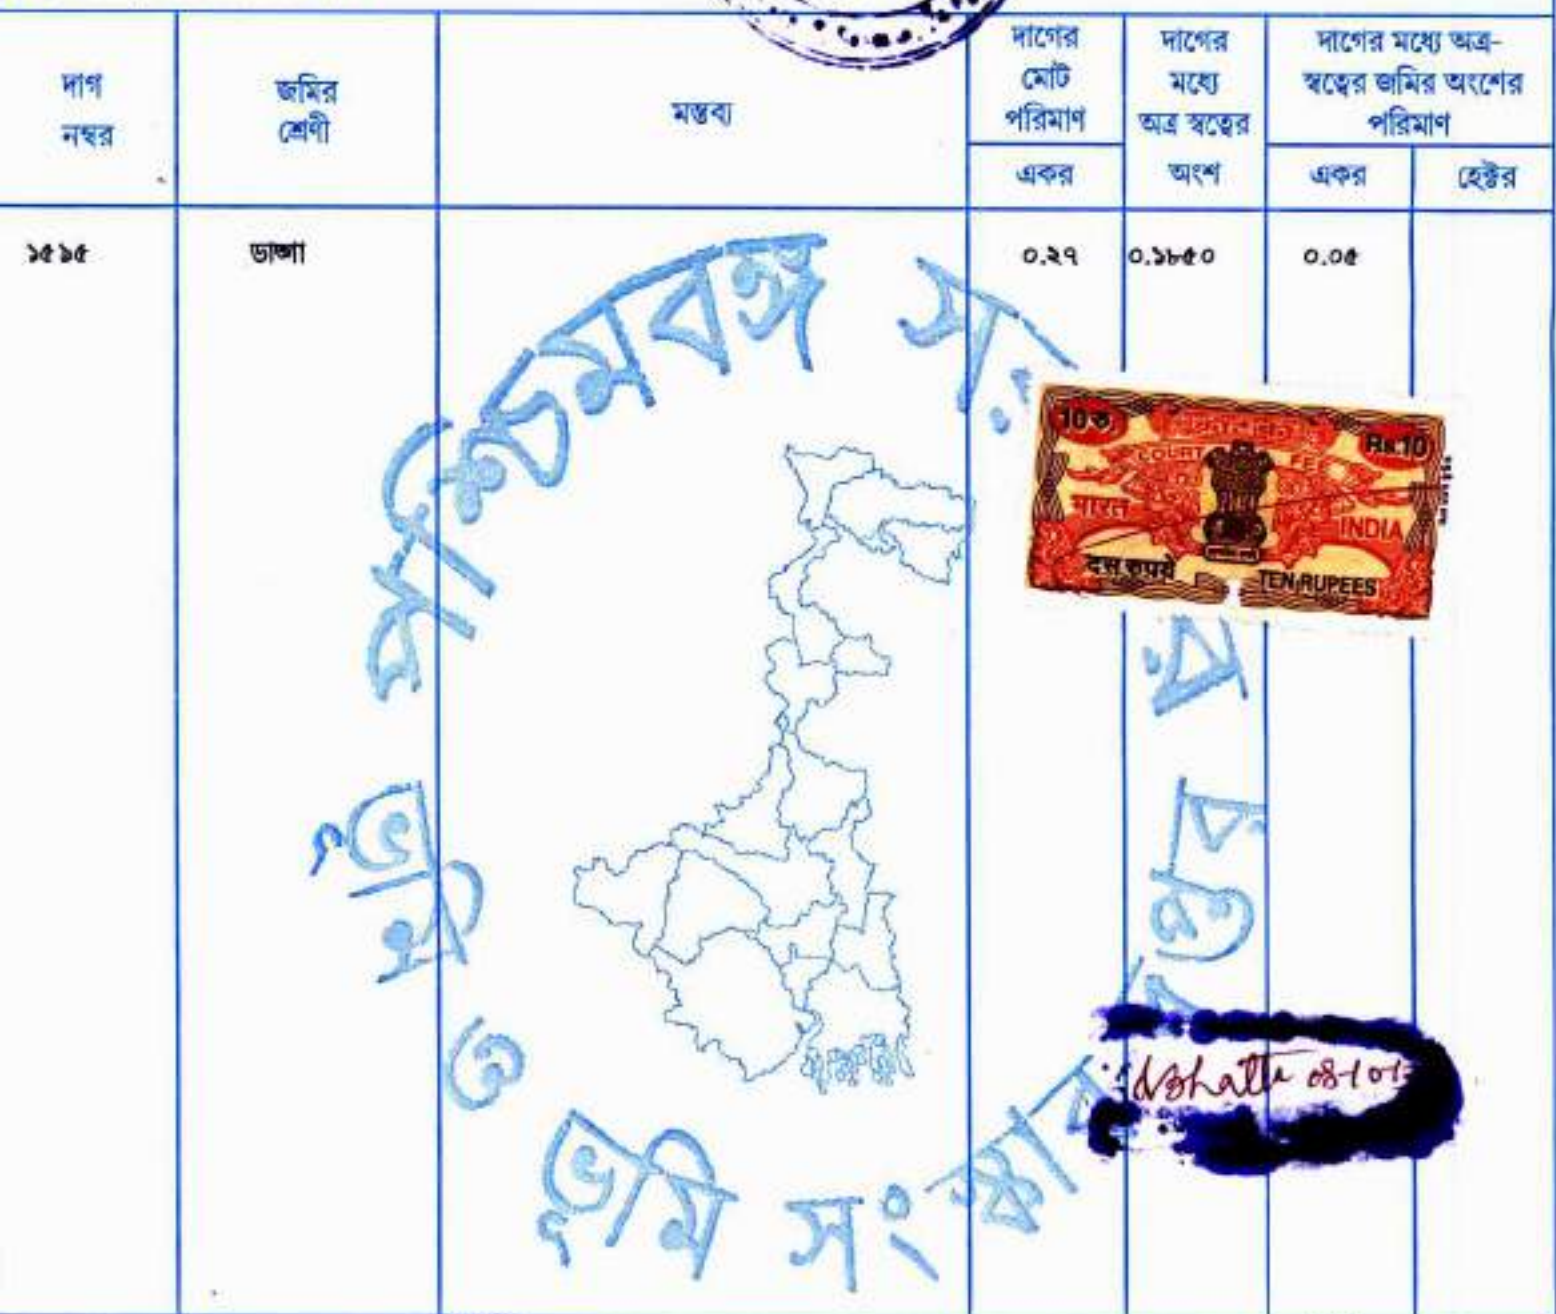 দাগ
নম্বর
জমির
শ্রেণী
মন্তব্য
দাগের
মোট
পরিমাণ
একর
দাগের
মধ্যে
অত্র স্বত্বের
অংশ
দাগের মধ্যে অত্র-
স্বত্বের জমির অংশের
পরিমাণ
একর
হেক্টর
১৫১৫
ডাঙ্গা
০.২৭
০.১৮৫০
০.০৫
পশ্চিমবঙ্গ
ভূমি ও ভূমি সংস্কার
10 रु
Rs.10
COURT FEE
भारत
INDIA
दस रुपये
TEN RUPEES